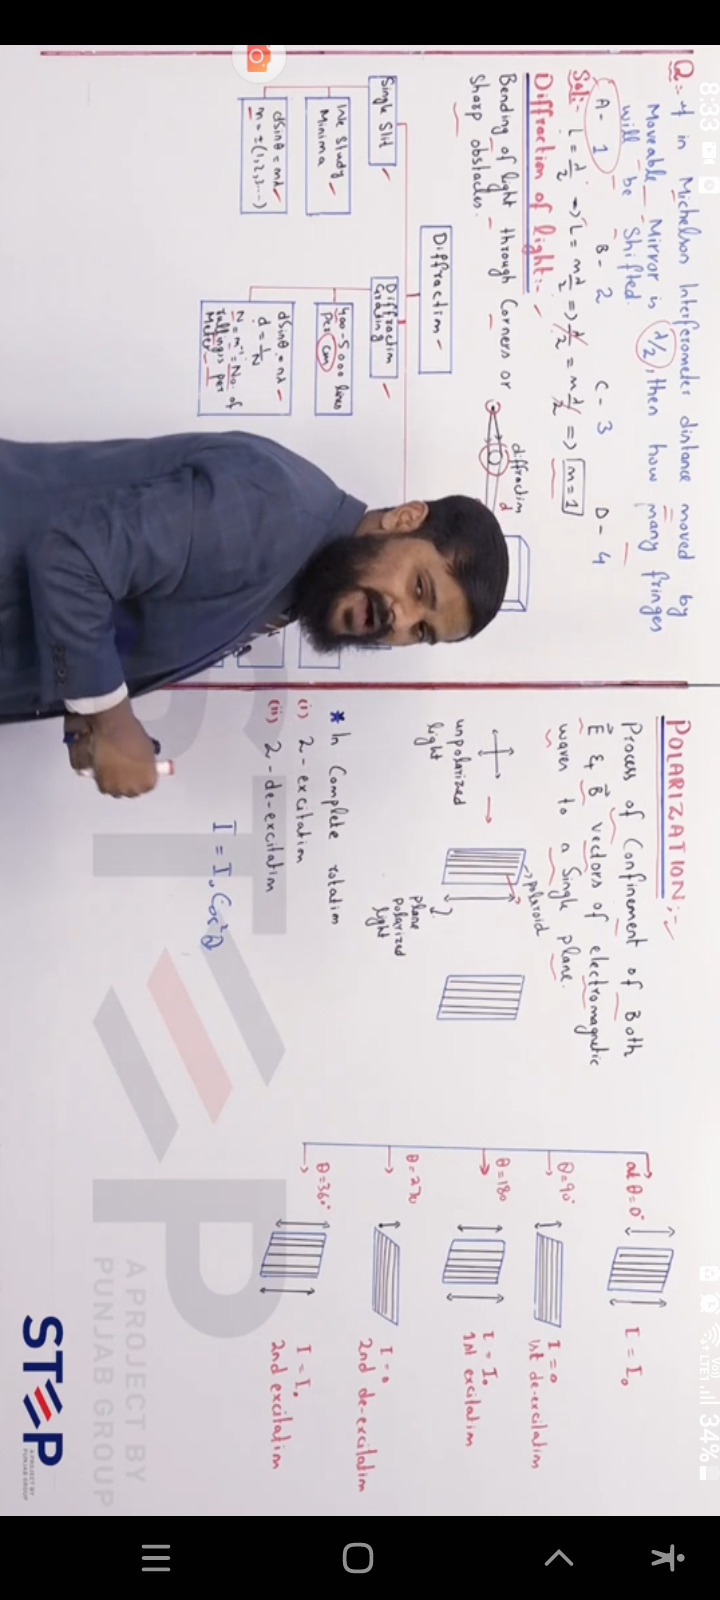 8:33
LTE1 34%
Q:- If in Michelson Interferometer distance moved by
Moveable Mirror is λ/2, then how many fringes
will be Shifted.
A- 1 B- 2 C- 3 D- 4
Sol:- L = λ/2 => L = mλ/2 => λ/2 = mλ/2 => m=1
Diffraction of light:-
Bending of light through Corners or
Sharp obstacles.
diffraction
d
Diffraction
Single Slit
We study
Minima
dSinθ = mλ
m = ±(1,2,3...)
Diffraction
Grating
400-5000 lines
per cm
dSinθ = nλ
d = 1/N
N = m⁻¹ = No. of
rulings per
Meter
POLARIZATION:-
Process of Confinement of Both
E & B vectors of electromagnetic
waves to a Single plane.
unpolarized
light
polaroid
plane
polarized
light
* In Complete rotation
(i) 2-excitation
(ii) 2-de-excitation
I = I₀ Cos²θ
at θ=0°
I = I₀
θ=90°
I = 0
1st de-excitation
θ=180
I = I₀
1st excitation
θ=270
I = 0
2nd de-excitation
θ=360°
I = I₀
2nd excitation
STEP
A PROJECT BY
PUNJAB GROUP
STEP
A PROJECT BY
PUNJAB GROUP